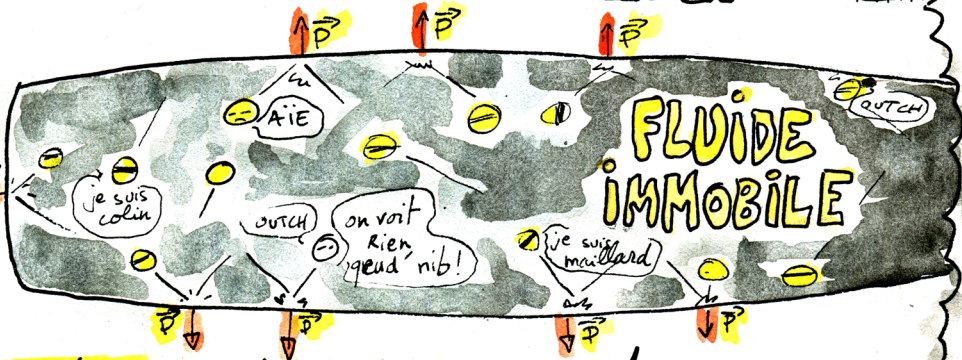 P P P
AÏE
OUTCH
FLUIDE
IMMOBILE
je suis
colin
OUTCH
on voit
Rien
qeud' nib!
je suis
maillard
P P P P